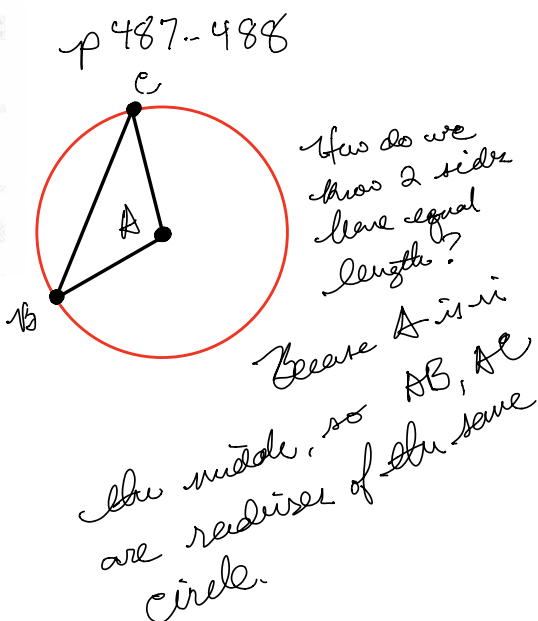 p 487-488
C
How do we
know 2 sides
A
have equal
length?
B
Because A is in
the middle, so AB, AC
are radiuses of the same
circle.